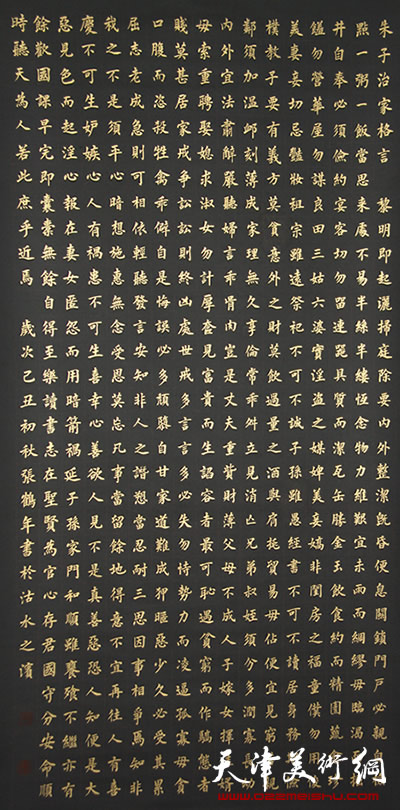 朱子治家格言　黎明即起灑掃庭除要內外整潔既昏便息關鎖門戶必親自檢
點一粥一飯當思來處不易半絲半縷恆念物力維艱宜未雨而綢繆毋臨渴而掘
井自奉必須儉約宴客切勿留連器具質而潔瓦缶勝金玉飲食約而精園蔬愈珍
饈勿營華屋勿謀良田三姑六婆實淫盜之媒婢美妾嬌非閨房之福童僕勿用俊
美妻妾切忌豔妝祖宗雖遠祭祀不可不誠子孫雖愚經書不可不讀居身務期質
樸教子要有義方莫貪意外之財莫飲過量之酒與肩挑貿易毋佔便宜見貧苦親
鄰須加溫卹刻薄成家理無久享倫常乖舛立見消亡兄弟叔姪須分多潤寡長幼
內外宜法肅辭嚴聽婦言乖骨肉豈是丈夫重貲財薄父母不成人子嫁女擇佳婿
毋索重聘娶媳求淑女勿計厚奩見富貴而生諂容者最可恥遇貧窮而作驕態者
賤莫甚居家戒爭訟訟則終凶處世戒多言言多必失勿恃勢力而凌逼孤寡毋貪
口腹而恣殺牲禽乖僻自是悔誤必多頹惰自甘家道難成狎暱惡少久必受其累
屈志老成急則可相依輕聽發言安知非人之譖愬當忍耐三思因事相爭焉知非
我之不是須平心暗想施惠無念受恩莫忘凡事當留餘地得意不宜再往人有喜
慶不可生妒嫉心人有禍患不可生喜幸心善欲人見不是真善惡恐人知便是大
惡見色而起淫心報在妻女匿怨而用暗箭禍延子孫家門和順雖饔飧不繼亦有
餘歡國課早完即囊橐無餘自得至樂讀書志在聖賢為官心存君國守分安命順
時聽天為人若此庶乎近焉　歲次己丑初秋張鶴年書於沽水之濱
天津美術網